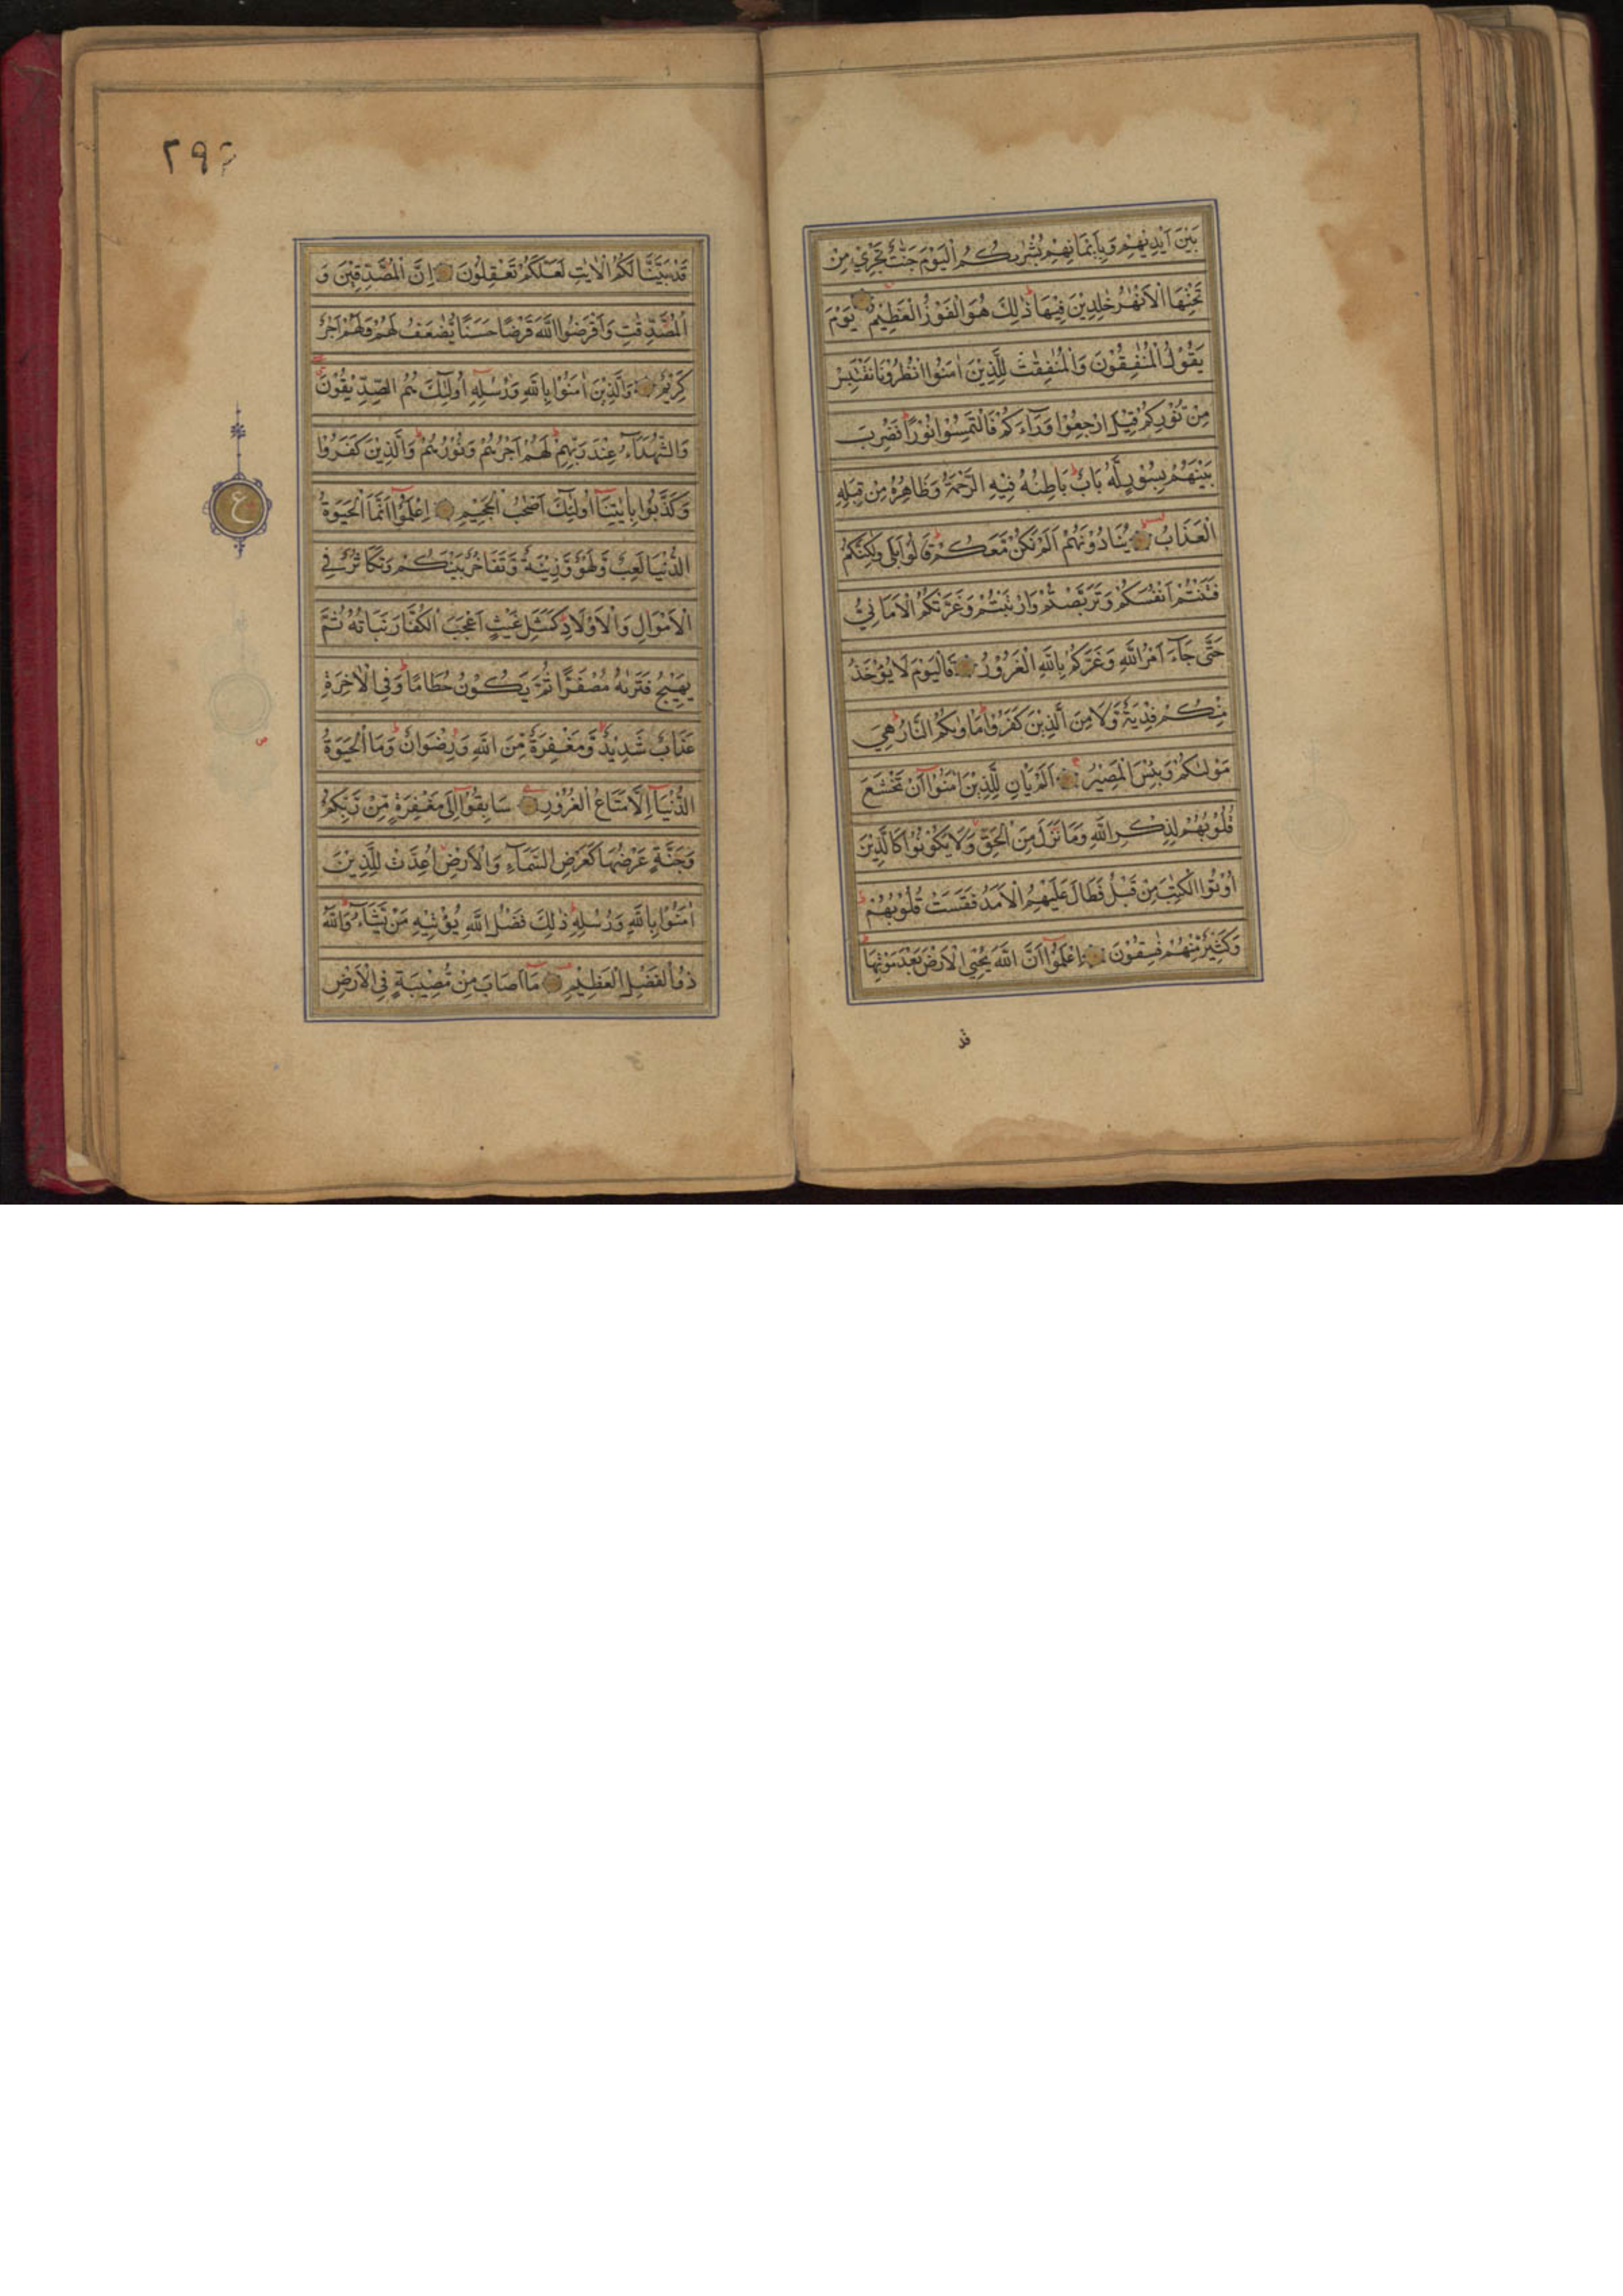 بَيْنَ اَيْدِيْهِمْ وَبِاَيْمَانِهِمْ بُشْرٰىكُمُ الْيَوْمَ جَنّٰتٌ تَجْرِيْ مِنْ
تَحْتِهَا الْاَنْهٰرُ خٰلِدِيْنَ فِيْهَا ذٰلِكَ هُوَ الْفَوْزُ الْعَظِيْمُ يَوْمَ
يَقُوْلُ الْمُنٰفِقُوْنَ وَالْمُنٰفِقٰتُ لِلَّذِيْنَ اٰمَنُوا انْظُرُوْنَا نَقْتَبِسْ
مِنْ نُّوْرِكُمْ قِيْلَ ارْجِعُوْا وَرَآءَكُمْ فَالْتَمِسُوْا نُوْرًا فَضُرِبَ
بَيْنَهُمْ بِسُوْرٍ لَّهٗ بَابٌ بَاطِنُهٗ فِيْهِ الرَّحْمَةُ وَظَاهِرُهٗ مِنْ قِبَلِهِ
الْعَذَابُ يُنَادُوْنَهُمْ اَلَمْ نَكُنْ مَّعَكُمْ قَالُوْا بَلٰى وَلٰكِنَّكُمْ
فَتَنْتُمْ اَنْفُسَكُمْ وَتَرَبَّصْتُمْ وَارْتَبْتُمْ وَغَرَّتْكُمُ الْاَمَانِيُّ
حَتّٰى جَآءَ اَمْرُ اللّٰهِ وَغَرَّكُمْ بِاللّٰهِ الْغَرُوْرُ فَالْيَوْمَ لَا يُؤْخَذُ
مِنْكُمْ فِدْيَةٌ وَّلَا مِنَ الَّذِيْنَ كَفَرُوْا مَاْوٰىكُمُ النَّارُ هِيَ
مَوْلٰىكُمْ وَبِئْسَ الْمَصِيْرُ اَلَمْ يَاْنِ لِلَّذِيْنَ اٰمَنُوْا اَنْ تَخْشَعَ
قُلُوْبُهُمْ لِذِكْرِ اللّٰهِ وَمَا نَزَلَ مِنَ الْحَقِّ وَلَا يَكُوْنُوْا كَالَّذِيْنَ
اُوْتُوا الْكِتٰبَ مِنْ قَبْلُ فَطَالَ عَلَيْهِمُ الْاَمَدُ فَقَسَتْ قُلُوْبُهُمْ
وَكَثِيْرٌ مِّنْهُمْ فٰسِقُوْنَ اِعْلَمُوْا اَنَّ اللّٰهَ يُحْيِ الْاَرْضَ بَعْدَ مَوْتِهَا
قد
قَدْ بَيَّنَّا لَكُمُ الْاٰيٰتِ لَعَلَّكُمْ تَعْقِلُوْنَ اِنَّ الْمُصَّدِّقِيْنَ وَ
الْمُصَّدِّقٰتِ وَاَقْرَضُوا اللّٰهَ قَرْضًا حَسَنًا يُّضٰعَفُ لَهُمْ وَلَهُمْ اَجْرٌ
كَرِيْمٌ وَالَّذِيْنَ اٰمَنُوْا بِاللّٰهِ وَرُسُلِهٖ اُولٰئِكَ هُمُ الصِّدِّيْقُوْنَ
وَالشُّهَدَآءُ عِنْدَ رَبِّهِمْ لَهُمْ اَجْرُهُمْ وَنُوْرُهُمْ وَالَّذِيْنَ كَفَرُوْا
وَكَذَّبُوْا بِاٰيٰتِنَا اُولٰئِكَ اَصْحٰبُ الْجَحِيْمِ اِعْلَمُوْا اَنَّمَا الْحَيٰوةُ
الدُّنْيَا لَعِبٌ وَّلَهْوٌ وَّزِيْنَةٌ وَّتَفَاخُرٌ بَيْنَكُمْ وَتَكَاثُرٌ فِي
الْاَمْوَالِ وَالْاَوْلَادِ كَمَثَلِ غَيْثٍ اَعْجَبَ الْكُفَّارَ نَبَاتُهٗ ثُمَّ
يَهِيْجُ فَتَرٰىهُ مُصْفَرًّا ثُمَّ يَكُوْنُ حُطَامًا وَفِي الْاٰخِرَةِ
عَذَابٌ شَدِيْدٌ وَّمَغْفِرَةٌ مِّنَ اللّٰهِ وَرِضْوَانٌ وَمَا الْحَيٰوةُ
الدُّنْيَا اِلَّا مَتَاعُ الْغُرُوْرِ سَابِقُوْا اِلٰى مَغْفِرَةٍ مِّنْ رَّبِّكُمْ
وَجَنَّةٍ عَرْضُهَا كَعَرْضِ السَّمَآءِ وَالْاَرْضِ اُعِدَّتْ لِلَّذِيْنَ
اٰمَنُوْا بِاللّٰهِ وَرُسُلِهٖ ذٰلِكَ فَضْلُ اللّٰهِ يُؤْتِيْهِ مَنْ يَّشَآءُ وَاللّٰهُ
ذُو الْفَضْلِ الْعَظِيْمِ مَا اَصَابَ مِنْ مُّصِيْبَةٍ فِي الْاَرْضِ
ع